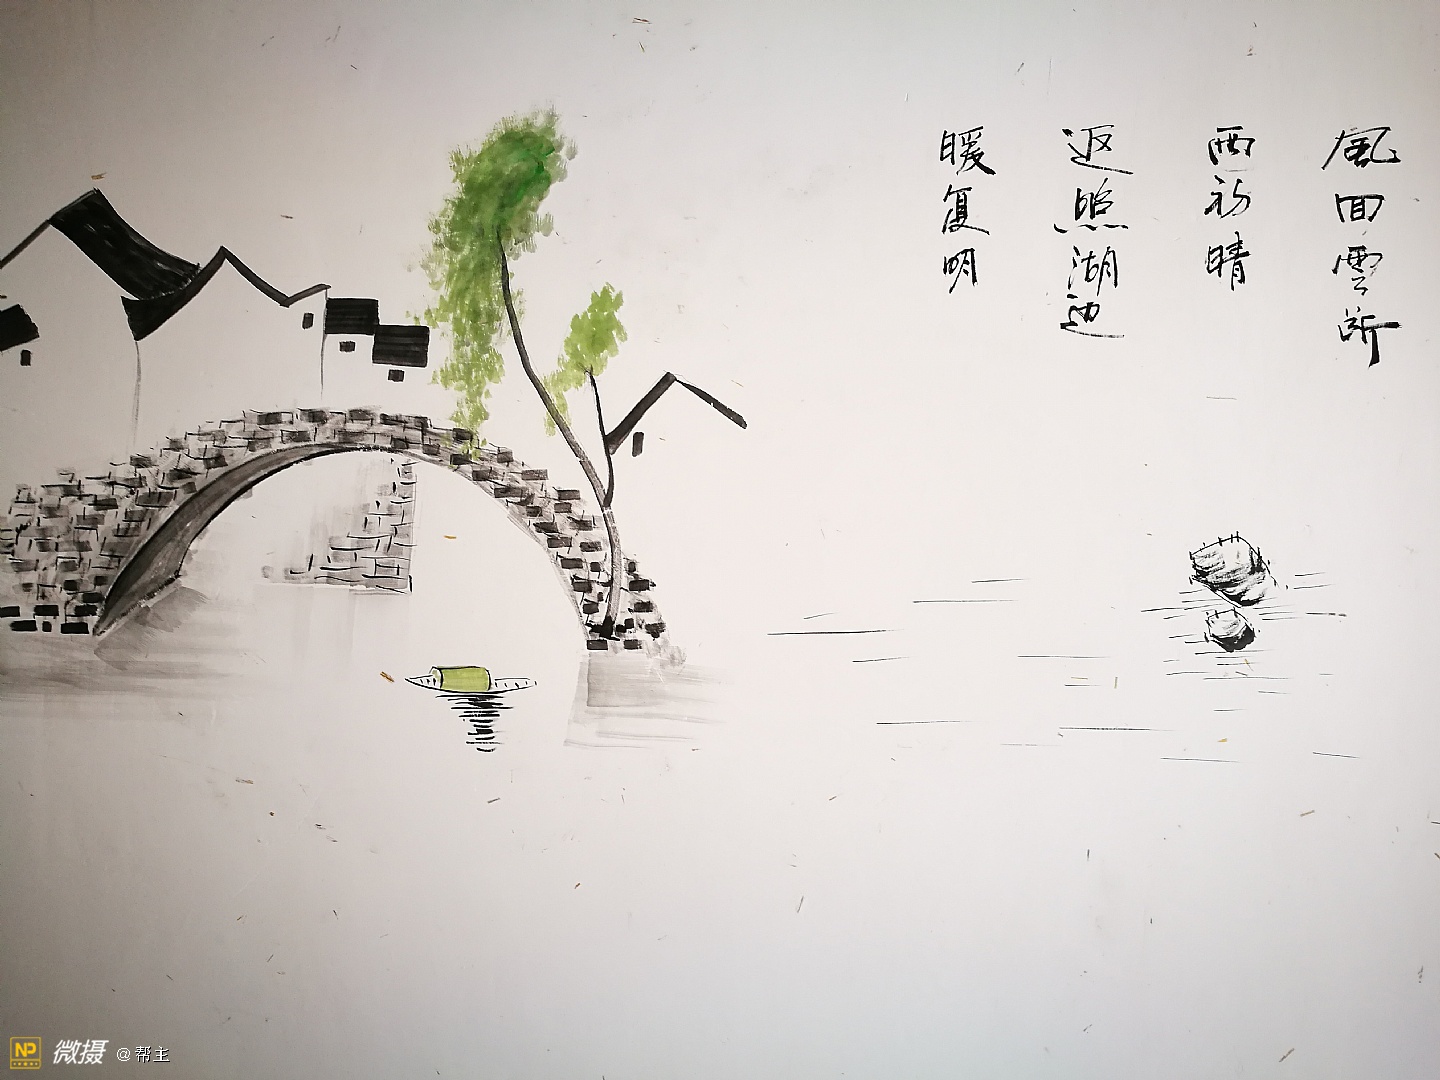 風回雲断
雨初晴
返照湖边
暖复明
NP 微摄 @帮主